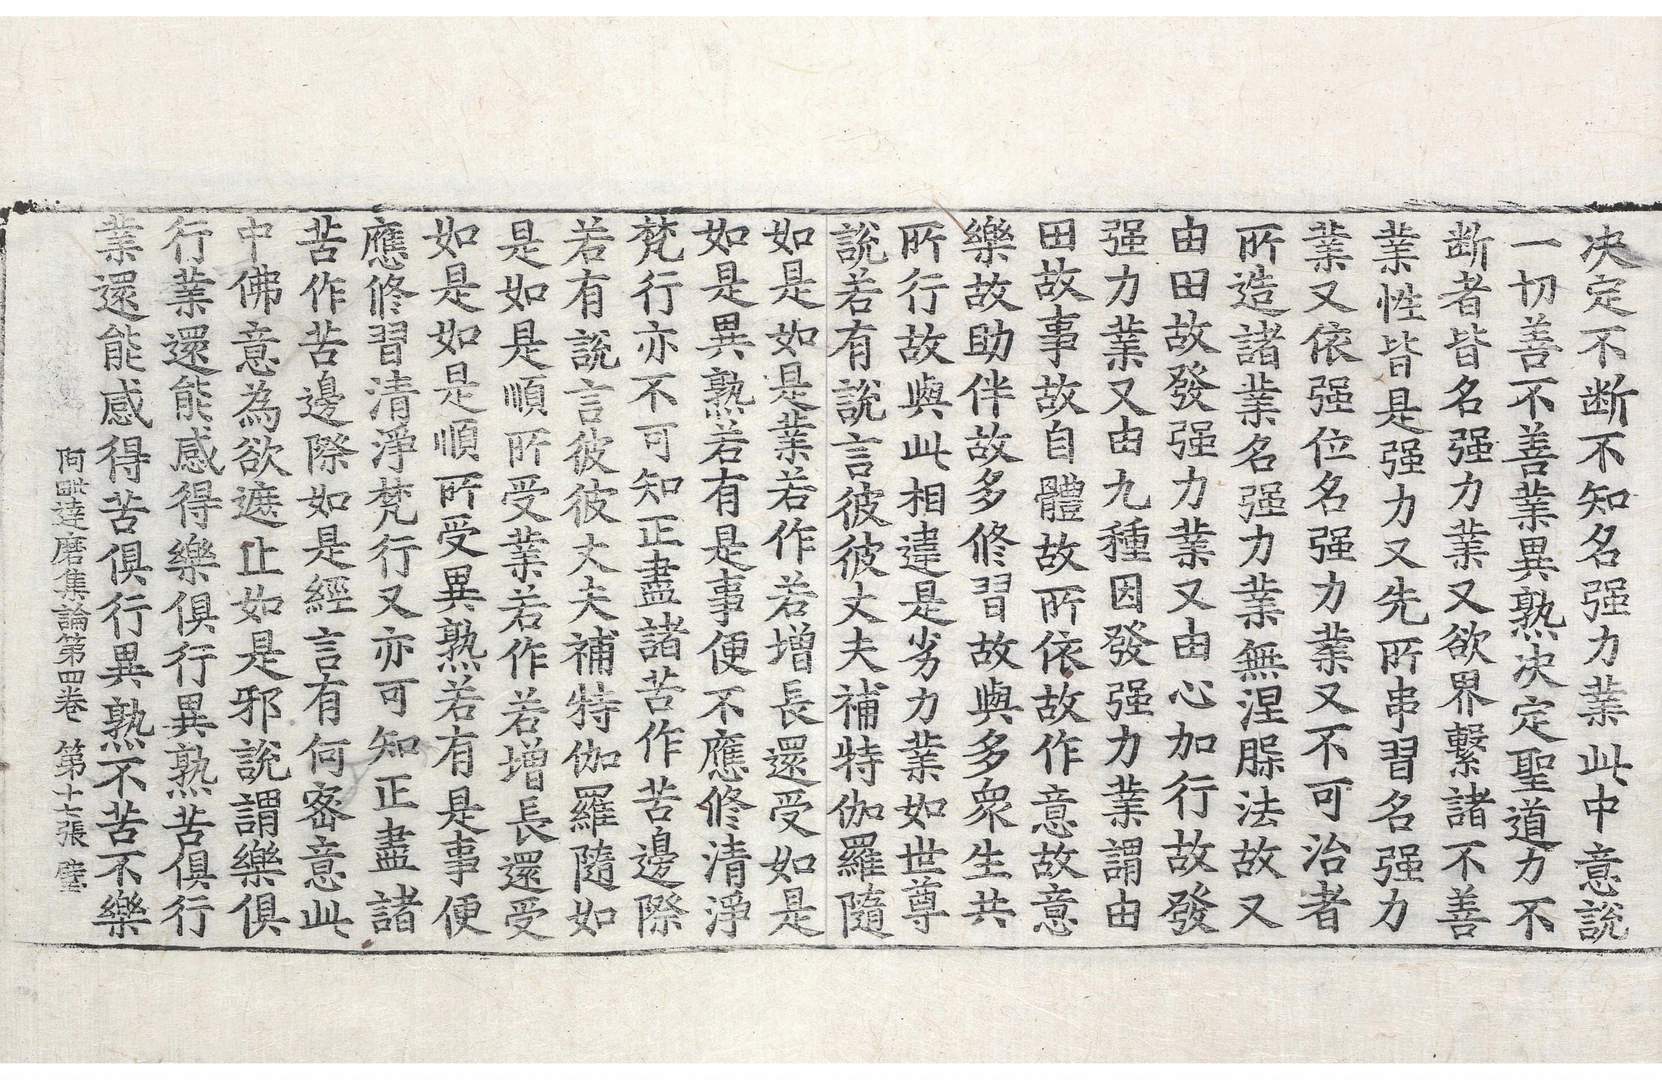 決定不斷不知名强力業此中意說
一切善不善業異熟決定聖道力不
断者皆名强力業又欲界繫諸不善
業性皆是强力又先所串習名强力
業又依强位名强力業又不可治者
所造諸業名强力業無涅槃法故又
由田故發强力業又由心加行故發
强力業又由九種因發强力業謂由
田故事故自體故所依故作意故意
樂故助伴故多修習故與多衆生共
所行故與此相違是劣力業如世尊
說若有說言彼彼丈夫補特伽羅隨
如是如是業若作若增長還受如是
如是異熟若有是事便不應修清淨
梵行亦不可知正盡諸苦作苦邊際
若有說言彼彼丈夫補特伽羅隨如
是如是順所受業若作若增長還受
如是如是順所受異熟若有是事便
應修習清淨梵行又亦可知正盡諸
苦作苦邊際如是經言有何密意此
中佛意為欲遮止如是邪說謂樂俱
行業還能感得樂俱行異熟苦俱行
業還能感得苦俱行異熟不苦不樂
阿毗達磨集論第四卷 第十七張 璧